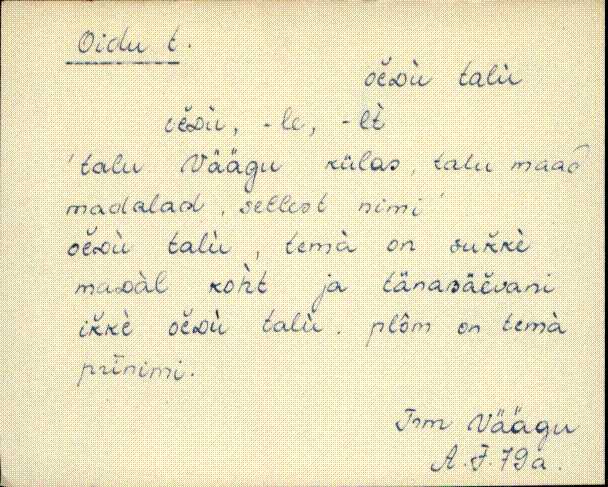 Oidu t.
oĕᴅù talù
oĕᴅù, -le, -lt̀
'talu Väägu külas, talu maad
madalad, sellest nimi'
oĕᴅù talù, temà on sukkè
maᴅàl koh̀t ja tänaᴃäĕvani
ikkè oĕᴅù talù. plôm on temà
prīnimi.
Trm Väägu
A.J.79a.